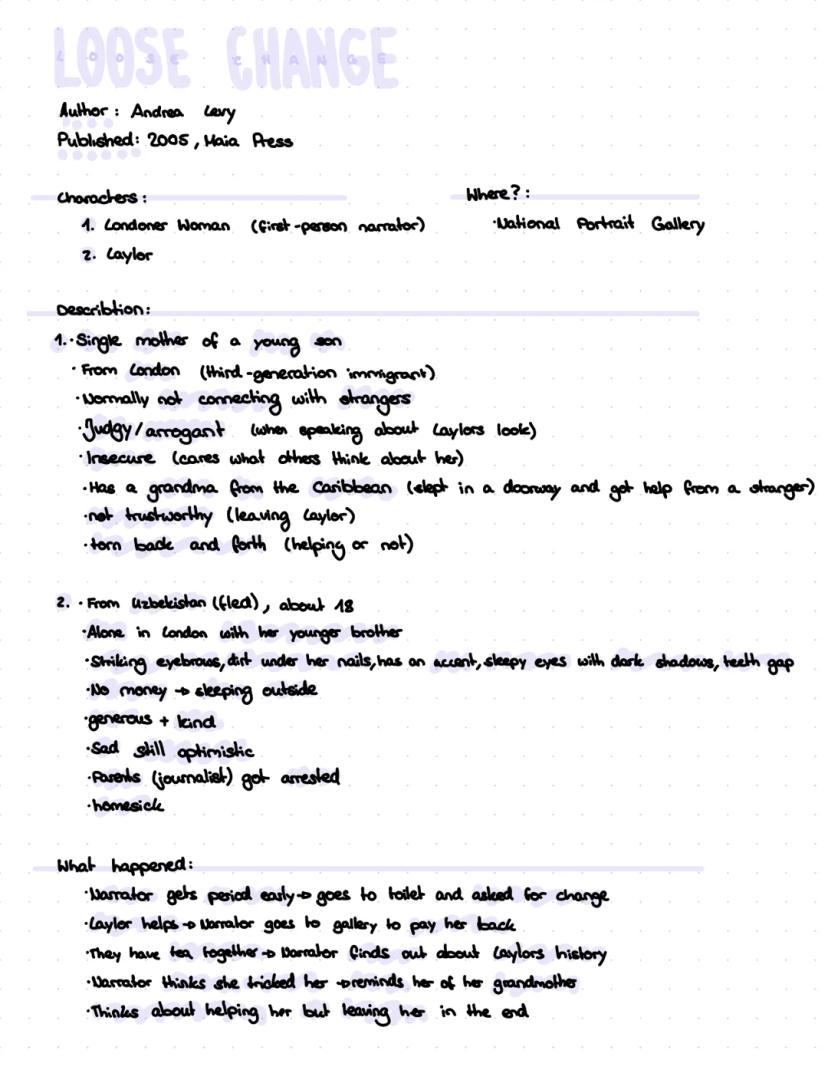 LOOSE CHANGE
Author: Andrea Levy
Published: 2005, Maia Press
Characters:
1. Londoner Woman (first-person narrator)
2. Laylor
Where?:
·National Portrait Gallery
Describtion:
1.·Single mother of a young son
·From London (third-generation immigrant)
·Normally not connecting with strangers
·Judgy/arrogant (when speaking about Laylors look)
·Insecure (cares what others think about her)
·Has a grandma from the Caribbean (slept in a doorway and got help from a stranger)
·not trustworthy (leaving Laylor)
·torn back and forth (helping or not)
2. ·From Uzbekistan (fled), about 18
·Alone in London with her younger brother
·Striking eyebrows, dirt under her nails, has an accent, sleepy eyes with dark shadows, teeth gap
·No money → sleeping outside
·generous + kind
·Sad still optimistic
·Parents (journalist) got arrested
·homesick
What happened:
·Narrator gets period early → goes to toilet and asked for change
·Laylor helps → Narrator goes to gallery to pay her back
·They have tea together → Narrator finds out about Laylors history
·Narrator thinks she tricked her → reminds her of her grandmother
·Thinks about helping her but leaving her in the end